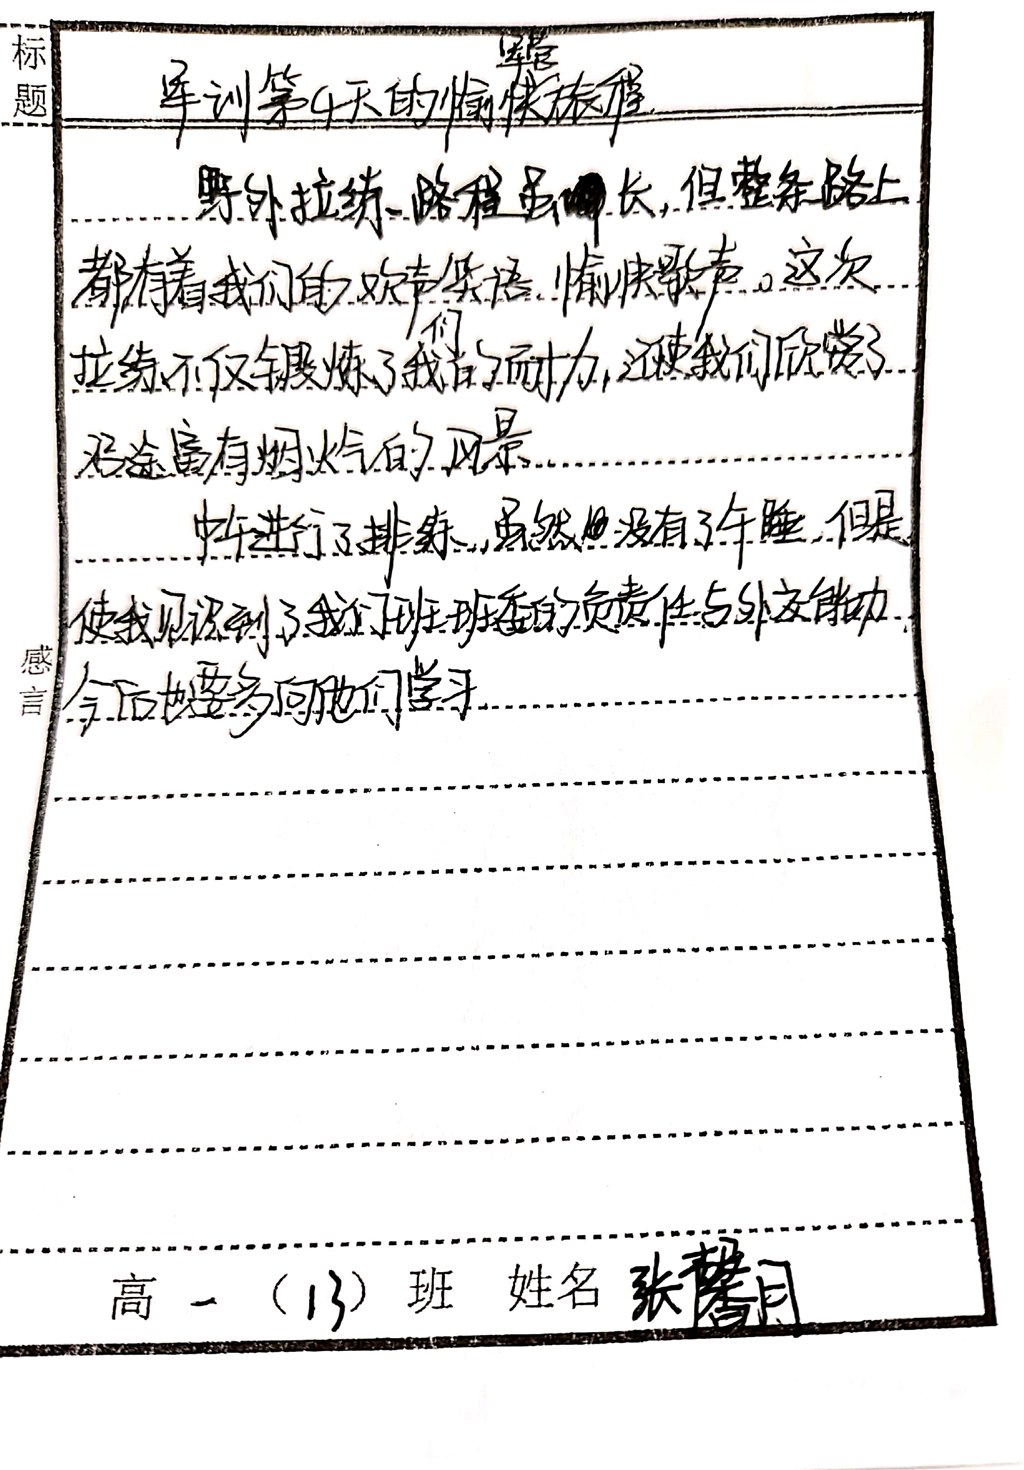 标题
军训第4天的愉快军营旅程
野外拉练、路程虽长，但整条路上
都有着我们的欢声笑语、愉快歌声。这次
拉练不仅锻炼了我们的耐力，还使我们欣赏了
沿途富有烟火气的风景
中午进行了排练，虽然没有了午睡，但是
使我见识到了我们班班委的负责任与外交能力，
今后也要多向他们学习
感言
高一（13）班 姓名 张馨月